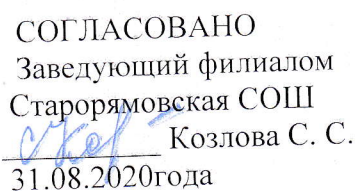 СОГЛАСОВАНО
Заведующий филиалом
Старорямовская СОШ
Козлова С. С.
31.08.2020года